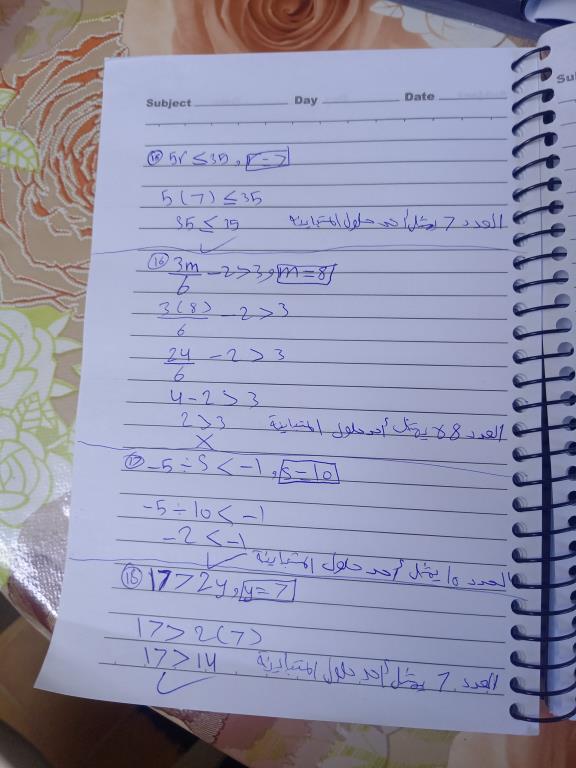 Subject Day Date
⑮ 5r ≤ 35 , r=7
5(7) ≤ 35
35 ≤ 35 العدد 7 يمثل أحد حلول المتباينة
✓
⑯ 3m/6 - 2 > 3 , m=8
3(8)/6 - 2 > 3
24/6 - 2 > 3
4 - 2 > 3
2 > 3 العدد 8 لا يمثل أحد حلول المتباينة
X
⑰ -5 ÷ S < -1 , s=10
-5 ÷ 10 < -1
-2 < -1
✓ العدد 10 يمثل أحد حلول المتباينة
⑱ 17 > 2y , y=7
17 > 2(7)
17 > 14 العدد 7 يمثل أحد حلول المتباينة
✓